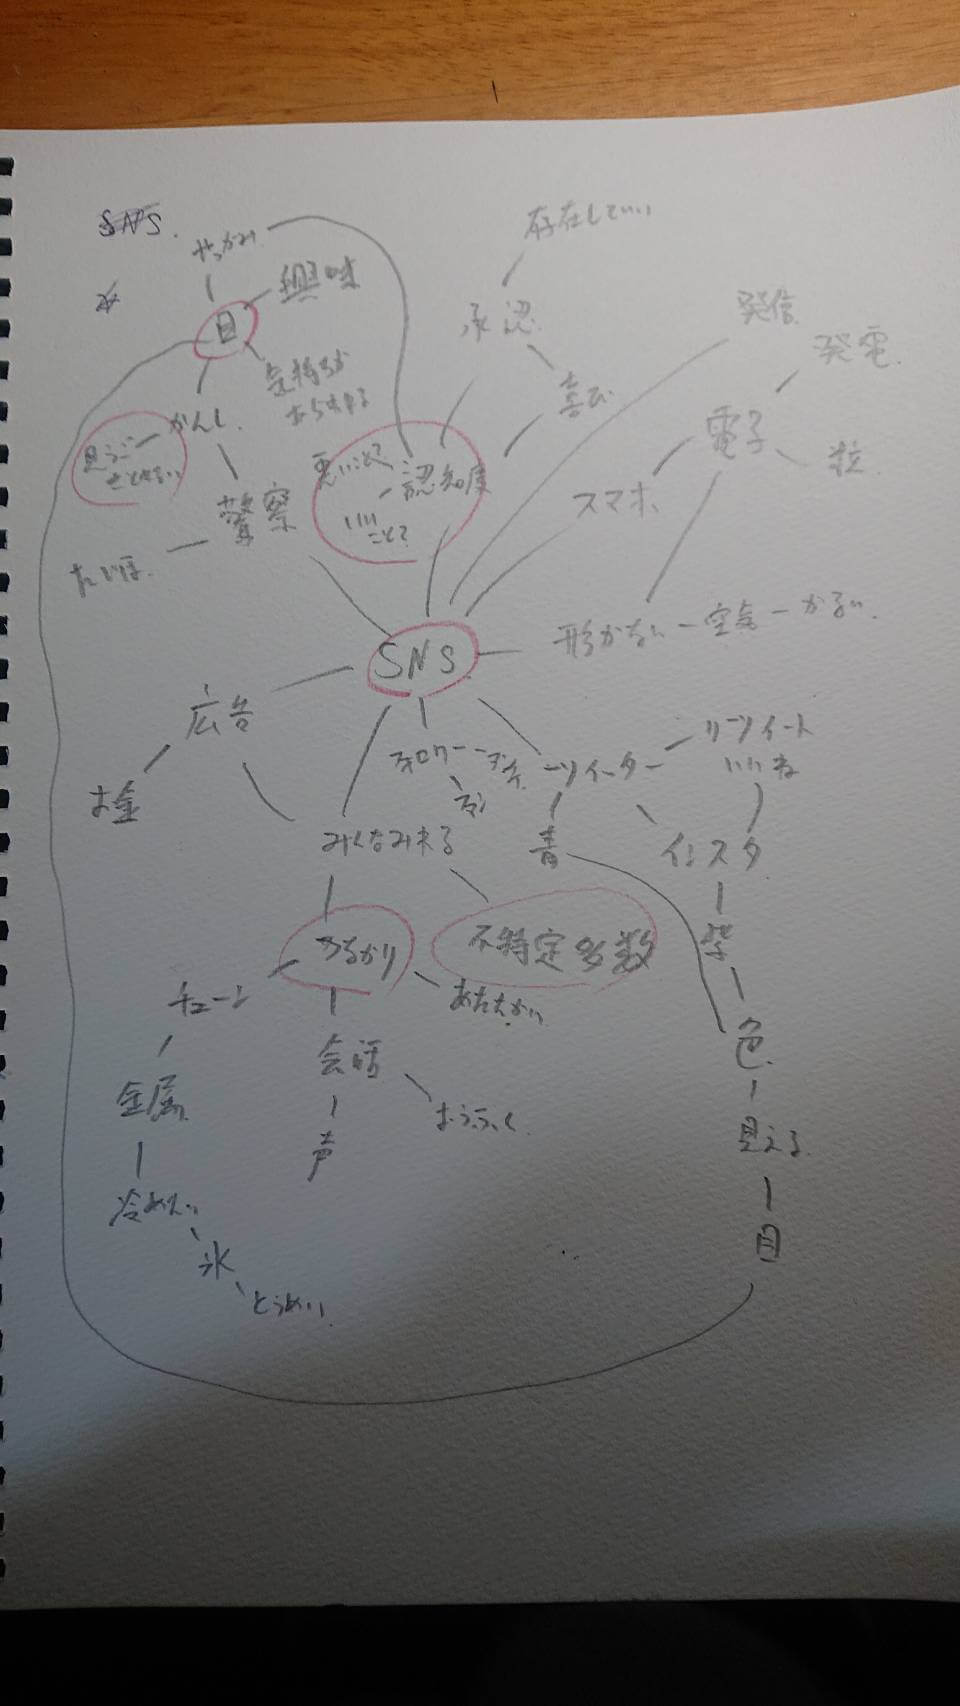 SNS.
存在していい
やっかみ
興味
目
承認
発信
発電
気持ちが
喜び
電子
かんし
悪いこと?
認知度
粒
いい
こと?
警察
スマホ
たいほ
形がない
空気
かるい
SNS
広告
フォロワー
ツイーター
リツイート
いいね
お金
みんなみれる
青
インスタ
つながり
不特定多数
紫
チェーン
あたたかい
色
会話
金属
おうふく
見える
声
冷めたい
目
氷
とうめい